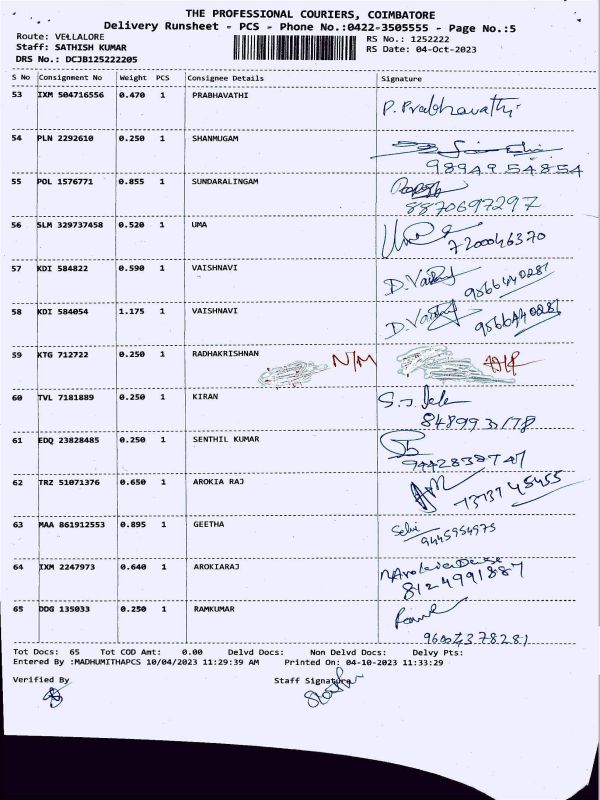 THE PROFESSIONAL COURIERS, COIMBATORE
Delivery Runsheet - PCS - Phone No.:0422-3505555 - Page No.:5
Route: VELLALORE RS No.: 1252222
Staff: SATHISH KUMAR RS Date: 04-Oct-2023
DRS No.: DCJB125222205
S No Consignment No Weight PCS Consignee Details Signature
53 IXM 504716556 0.470 1 PRABHAVATHI P. Prabhavathi
54 PLN 2292610 0.250 1 SHANMUGAM
98949 54854
55 POL 1576771 0.855 1 SUNDARALINGAM
8870697297
56 SLM 329737458 0.520 1 UMA 7200046370
57 KDI 584822 0.590 1 VAISHNAVI 9566440281
58 KDI 584054 1.175 1 VAISHNAVI 9566440281
59 KTG 712722 0.250 1 RADHAKRISHNAN N/M
60 TVL 7181889 0.250 1 KIRAN
61 EDQ 23828485 0.250 1 SENTHIL KUMAR
62 TRZ 51071376 0.650 1 AROKIA RAJ
63 MAA 861912553 0.895 1 GEETHA Selvi
9445954975
64 IXM 2247973 0.640 1 AROKIARAJ
8124991887
65 DDG 135033 0.250 1 RAMKUMAR
Tot Docs: 65 Tot COD Amt: 0.00 Delvd Docs: Non Delvd Docs: Delvy Pts:
Entered By :MADHUMITHAPCS 10/04/2023 11:29:39 AM Printed On: 04-10-2023 11:33:29
Verified By Staff Signature